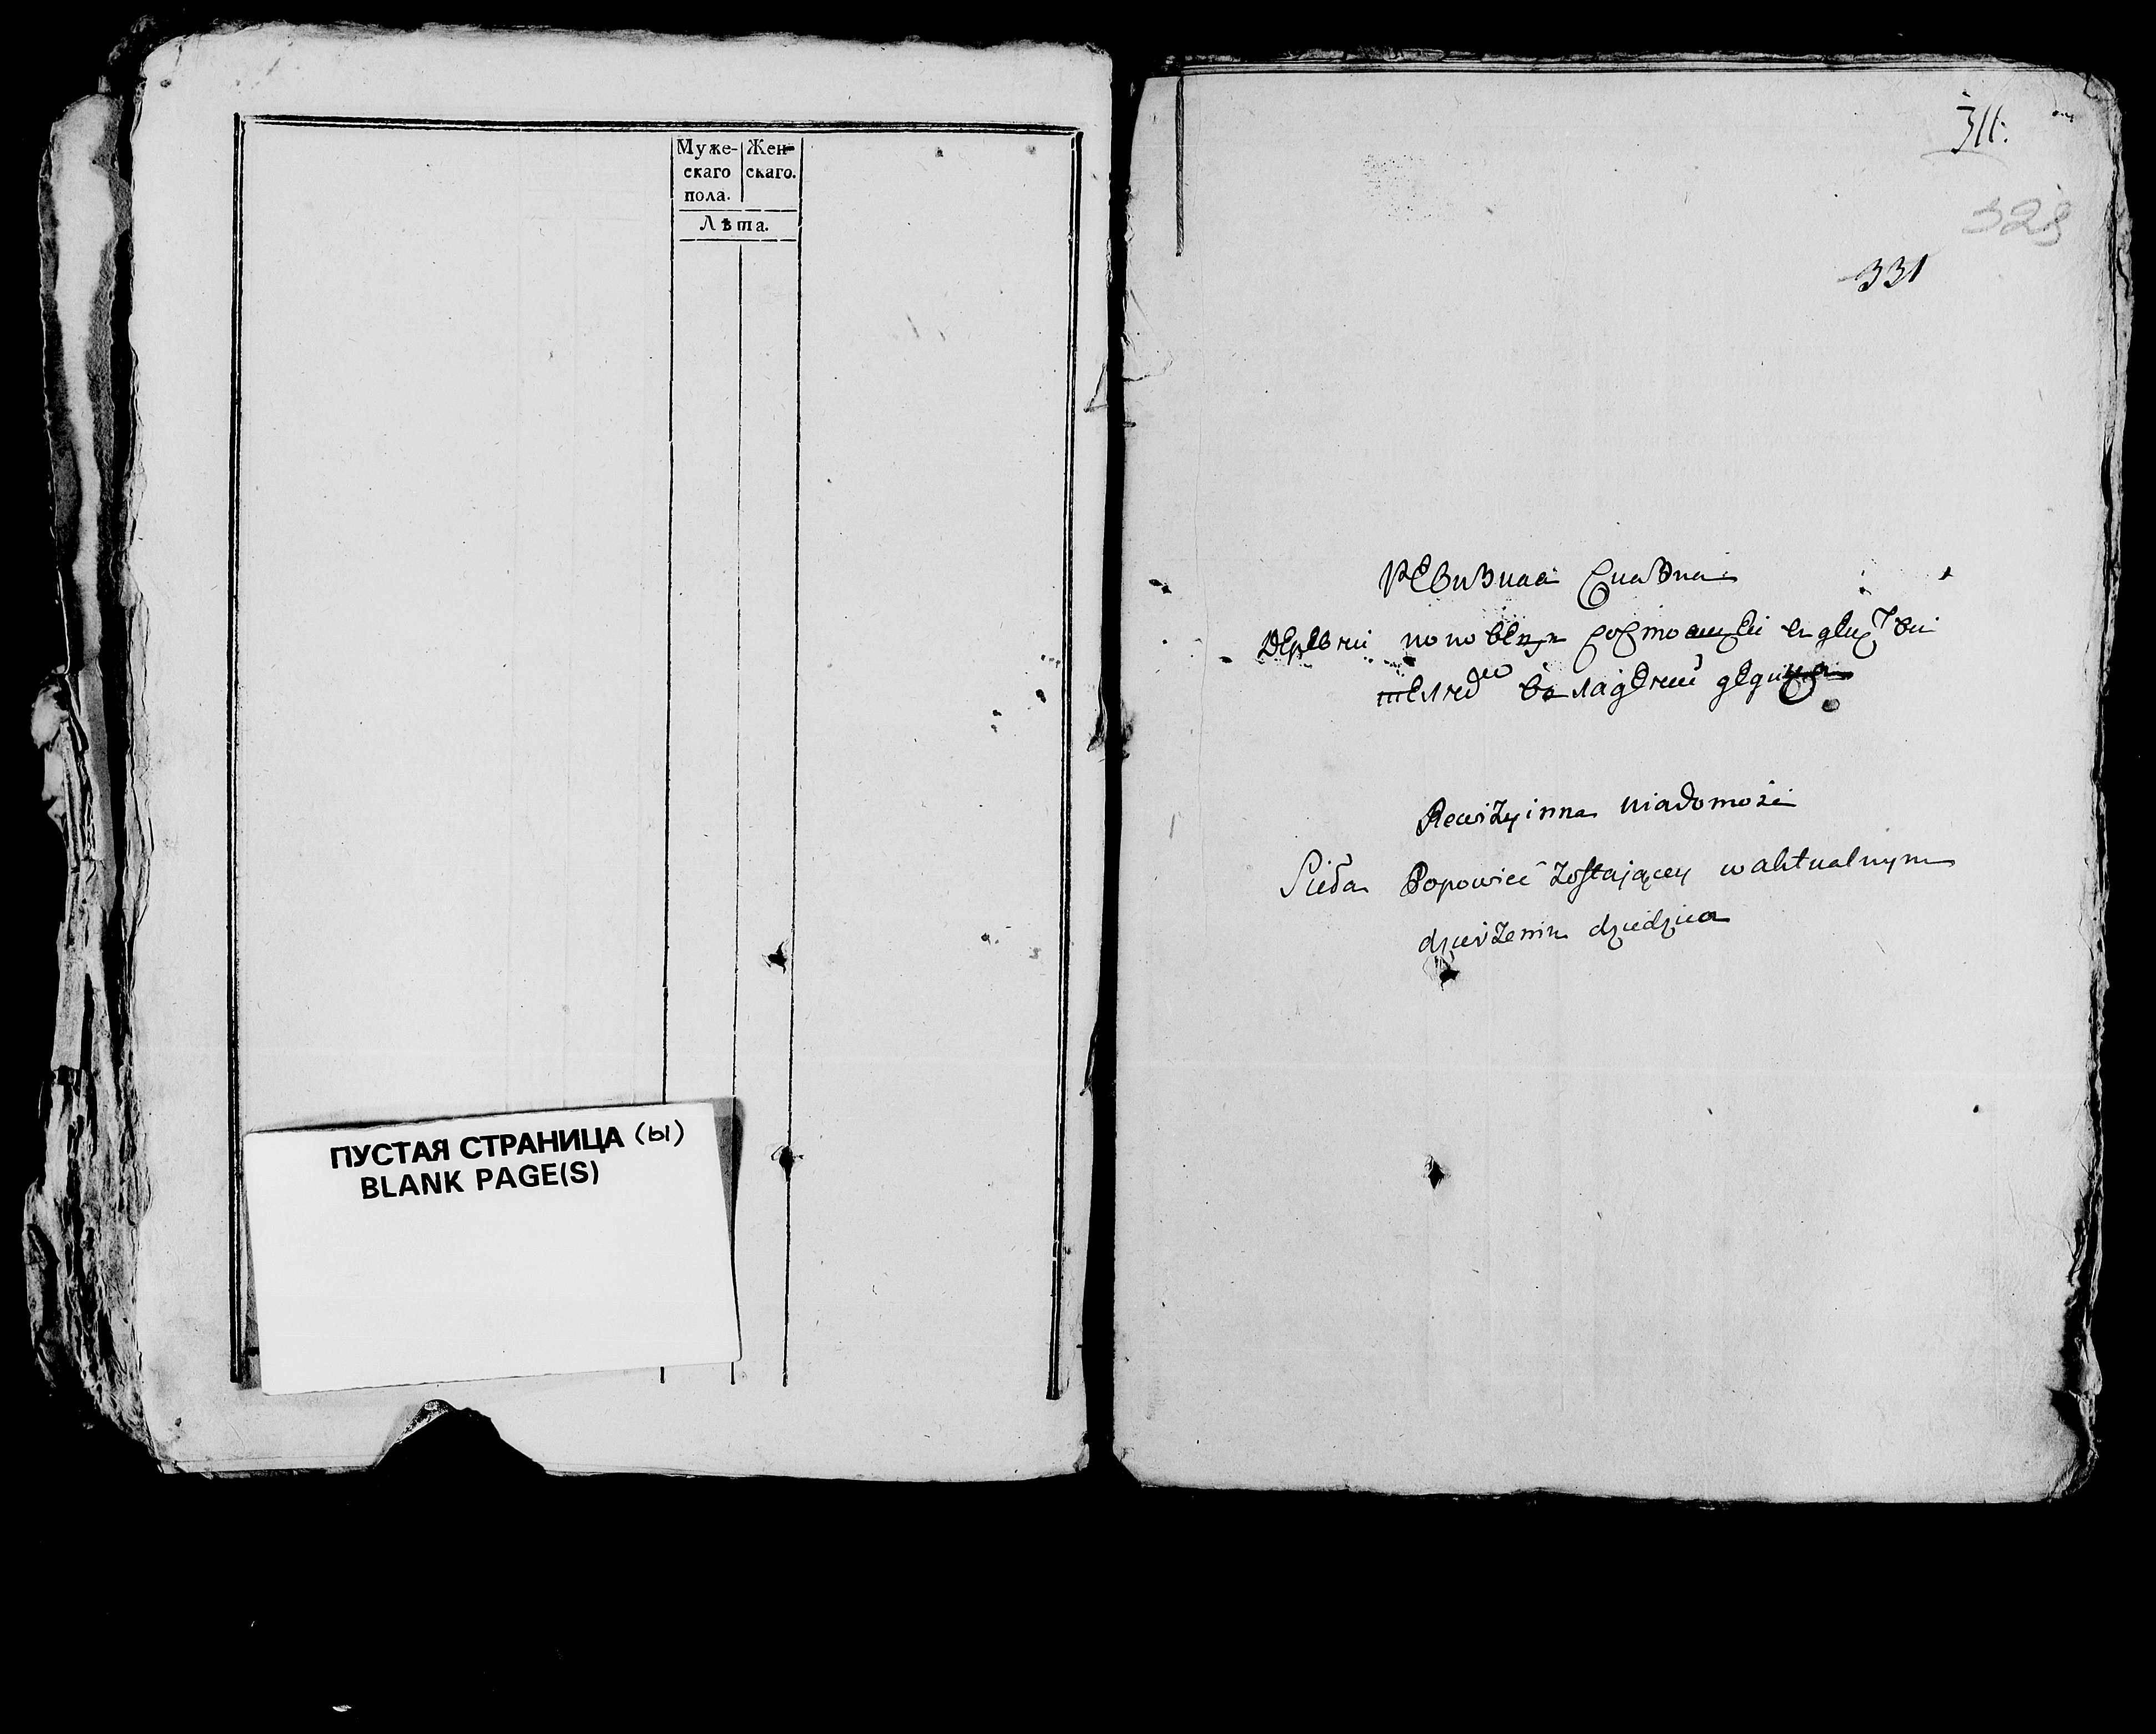 Муже- Жен-
скаго скаго.
пола.
Лѣта.
ПУСТАЯ СТРАНИЦА (ы)
BLANK PAGE(S)
311.
328
331
Ревизная сказка
Деревни поповець состоящеи в деист
владении дедица
Rewizyinna wiadomość
Popowiec zostaiącey w aktualnym
dzierżeniu dziedzica